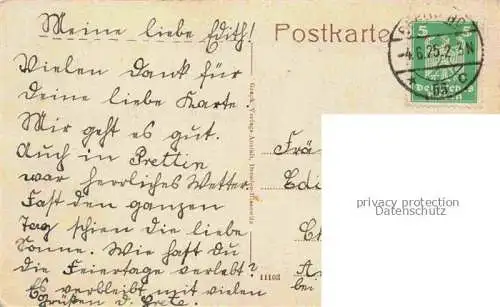 Meine liebe Edith!
Postkarte
Vielen Dank für
Deine liebe Karte.
Mir geht es gut.
Auch in Prettin
war herrliches Wetter.
Fast den ganzen
Tag schien die liebe
Sonne. Wie hast Du
die Feiertage verlebt?
Es verbleibt mit vielen
Grüßen d. Grete.
5 5
-4.6.25.2-3N
* b a c
Frä
Edi
bei
11103
privacy protection
Datenschutz